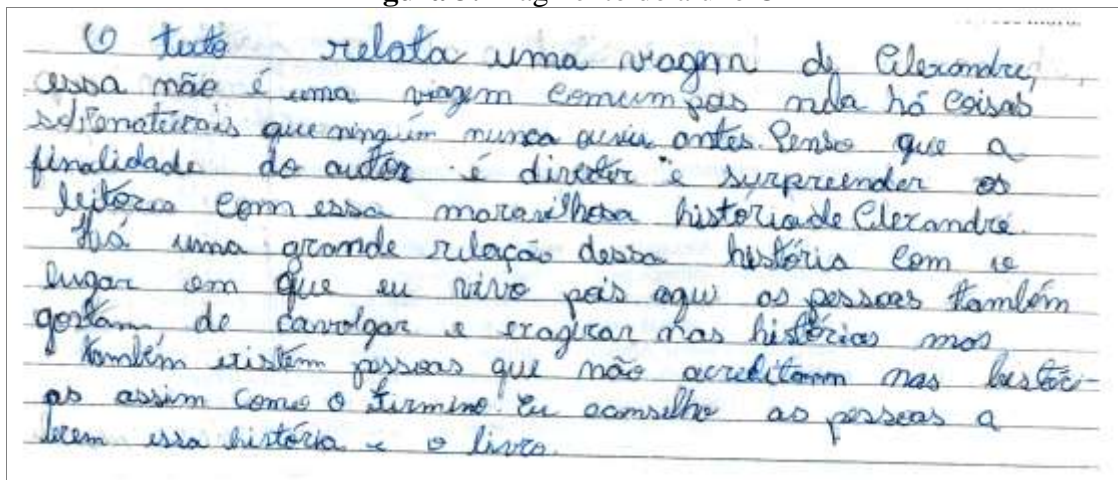 O texto relata uma viagem de Alexandre,
essa não é uma viagem comum pois nela há coisas
sobrenaturais que ninguém nunca ouviu antes. Penso que a
finalidade do autor é divertir e surpreender os
leitores com essa maravilhosa história de Alexandre.
Há uma grande relação dessa história com o
lugar em que eu vivo pois aqui as pessoas também
gostam de cavalgar e exagirar nas histórias mas
também existem pessoas que não acreditam nas históri-
as assim como o Firmino. Eu aconselho as pessoas a
lerem essa história e o livro.